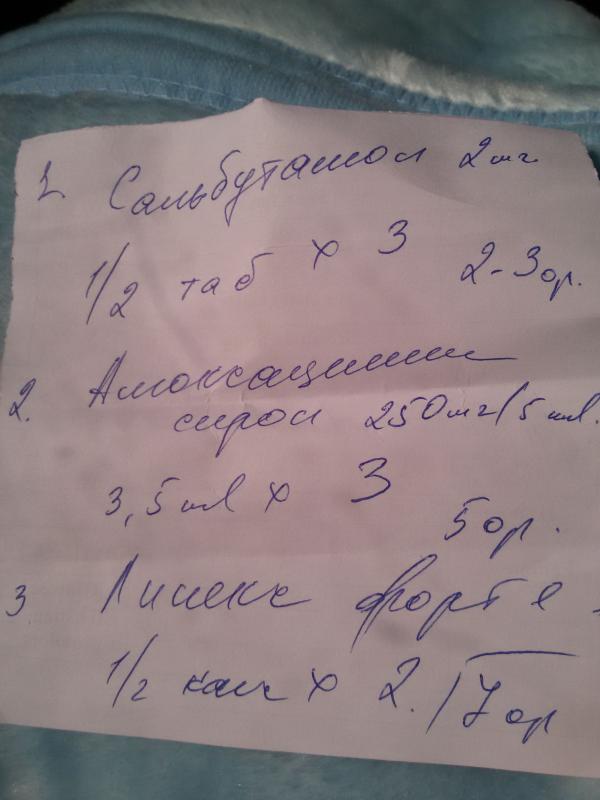 1. Сальбутамол 2мг.
1/2 таб x 3 2-3 ор.
2. Амоксациллин
сироп 250мг/5ml.
3,5ml x 3
5 ор.
3 Линекс форте
1/2 капс x 2. / 7 ор